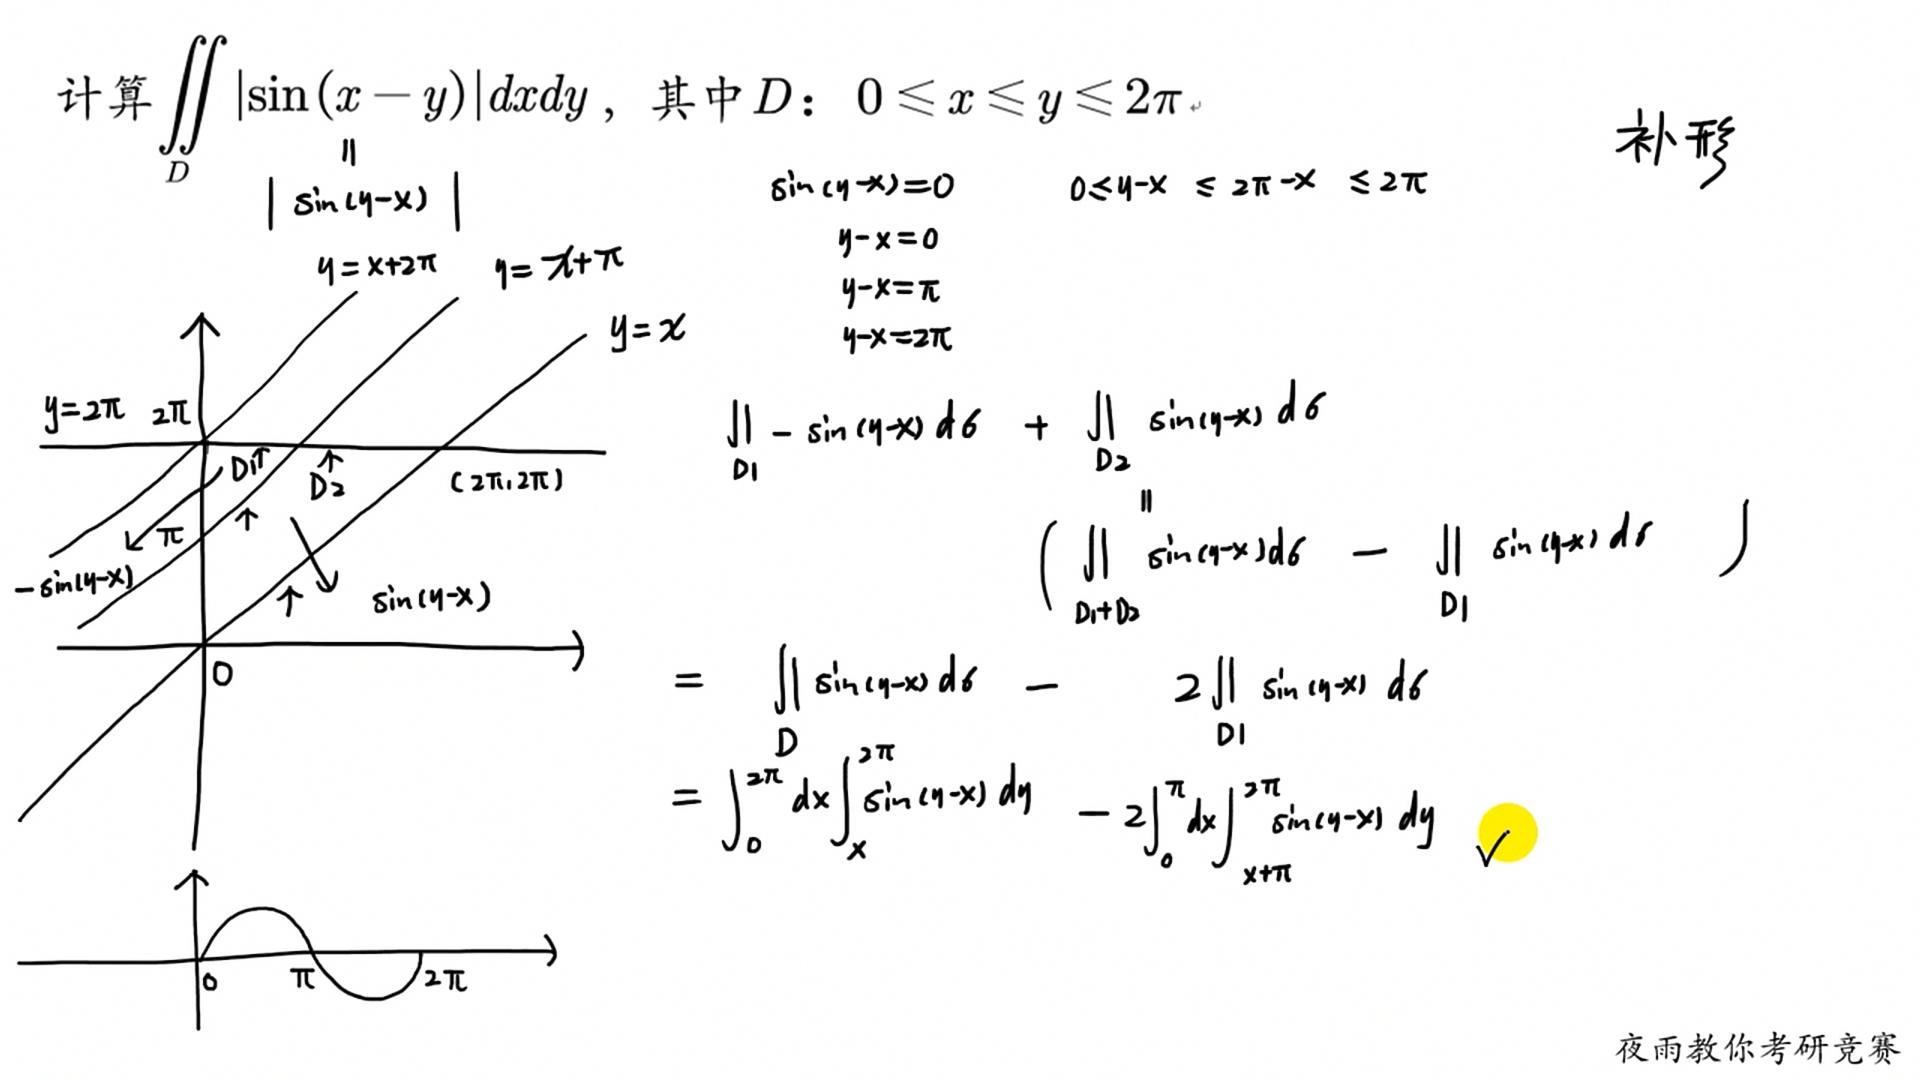 计算∬_D |sin(x − y)|dxdy，其中D：0 ⩽ x ⩽ y ⩽ 2π
补形
||
| sin(y-x) |
sin(y-x)=0
0≤y-x ≤ 2π-x ≤ 2π
y-x=0
y-x=π
y-x=2π
y=x+2π
y=x+π
y=x
y=2π
2π
D1
D2
(2π,2π)
π
-sin(y-x)
sin(y-x)
0
∬_D1 - sin(y-x) dσ + ∬_D2 sin(y-x) dσ
||
( ∬_D1+D2 sin(y-x)dσ - ∬_D1 sin(y-x) dσ )
= ∬_D sin(y-x) dσ - 2∬_D1 sin(y-x) dσ
= ∫_0^2π dx ∫_x^2π sin(y-x) dy - 2∫_0^π dx ∫_x+π^2π sin(y-x) dy ✓
0 π 2π
夜雨教你考研竞赛